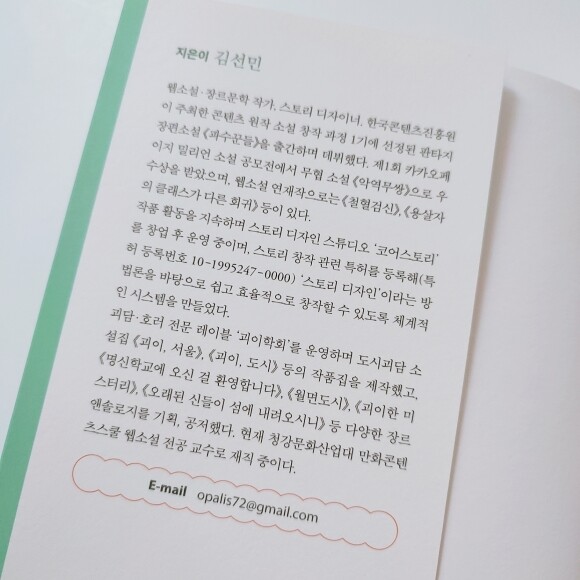 지은이 김선민
웹소설·장르문학 작가, 스토리 디자이너. 한국콘텐츠진흥원
이 주최한 콘텐츠 원작 소설 창작 과정 1기에 선정된 판타지
장편소설 《파수꾼들》을 출간하며 데뷔했다. 제1회 카카오페
이지 밀리언 소설 공모전에서 무협 소설 《악역무쌍》으로 우
수상을 받았으며, 웹소설 연재작으로는 《철혈검신》, 《용살자
의 클래스가 다른 회귀》 등이 있다.
작품 활동을 지속하며 스토리 디자인 스튜디오 ‘코어스토리’
를 창업 후 운영 중이며, 스토리 창작 관련 특허를 등록해(특
허 등록번호 10-1995247-0000) ‘스토리 디자인’이라는 방
법론을 바탕으로 쉽고 효율적으로 창작할 수 있도록 체계적
인 시스템을 만들었다.
괴담·호러 전문 레이블 ‘괴이학회’를 운영하며 도시괴담 소
설집 《괴이, 서울》, 《괴이, 도시》 등의 작품집을 제작했고,
《명신학교에 오신 걸 환영합니다》, 《월면도시》, 《괴이한 미
스터리》, 《오래된 신들이 섬에 내려오시니》 등 다양한 장르
앤솔로지를 기획, 공저했다. 현재 청강문화산업대 만화콘텐
츠스쿨 웹소설 전공 교수로 재직 중이다.
E-mail opalis72@gmail.com